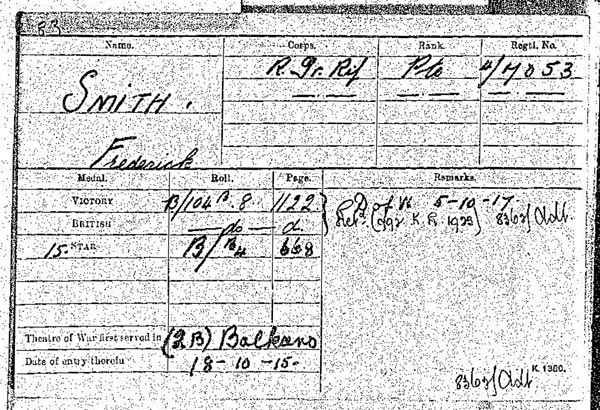 83
Name. Corps. Rank. Regtl. No.
SMITH. R. Ir. Rif Pte 4/7053
Frederick
Medal. Roll. Page. Remarks.
VICTORY B/104 B. 8. 1122 D of W. 5-10-17.
BRITISH — do — d. (992 K. R. 1923) 8363/Adt.
15 STAR B/ 668
Theatre of War first served in (2B) Balkans
Date of entry therein 18-10-15-
K. 1380.
8363/Adt.